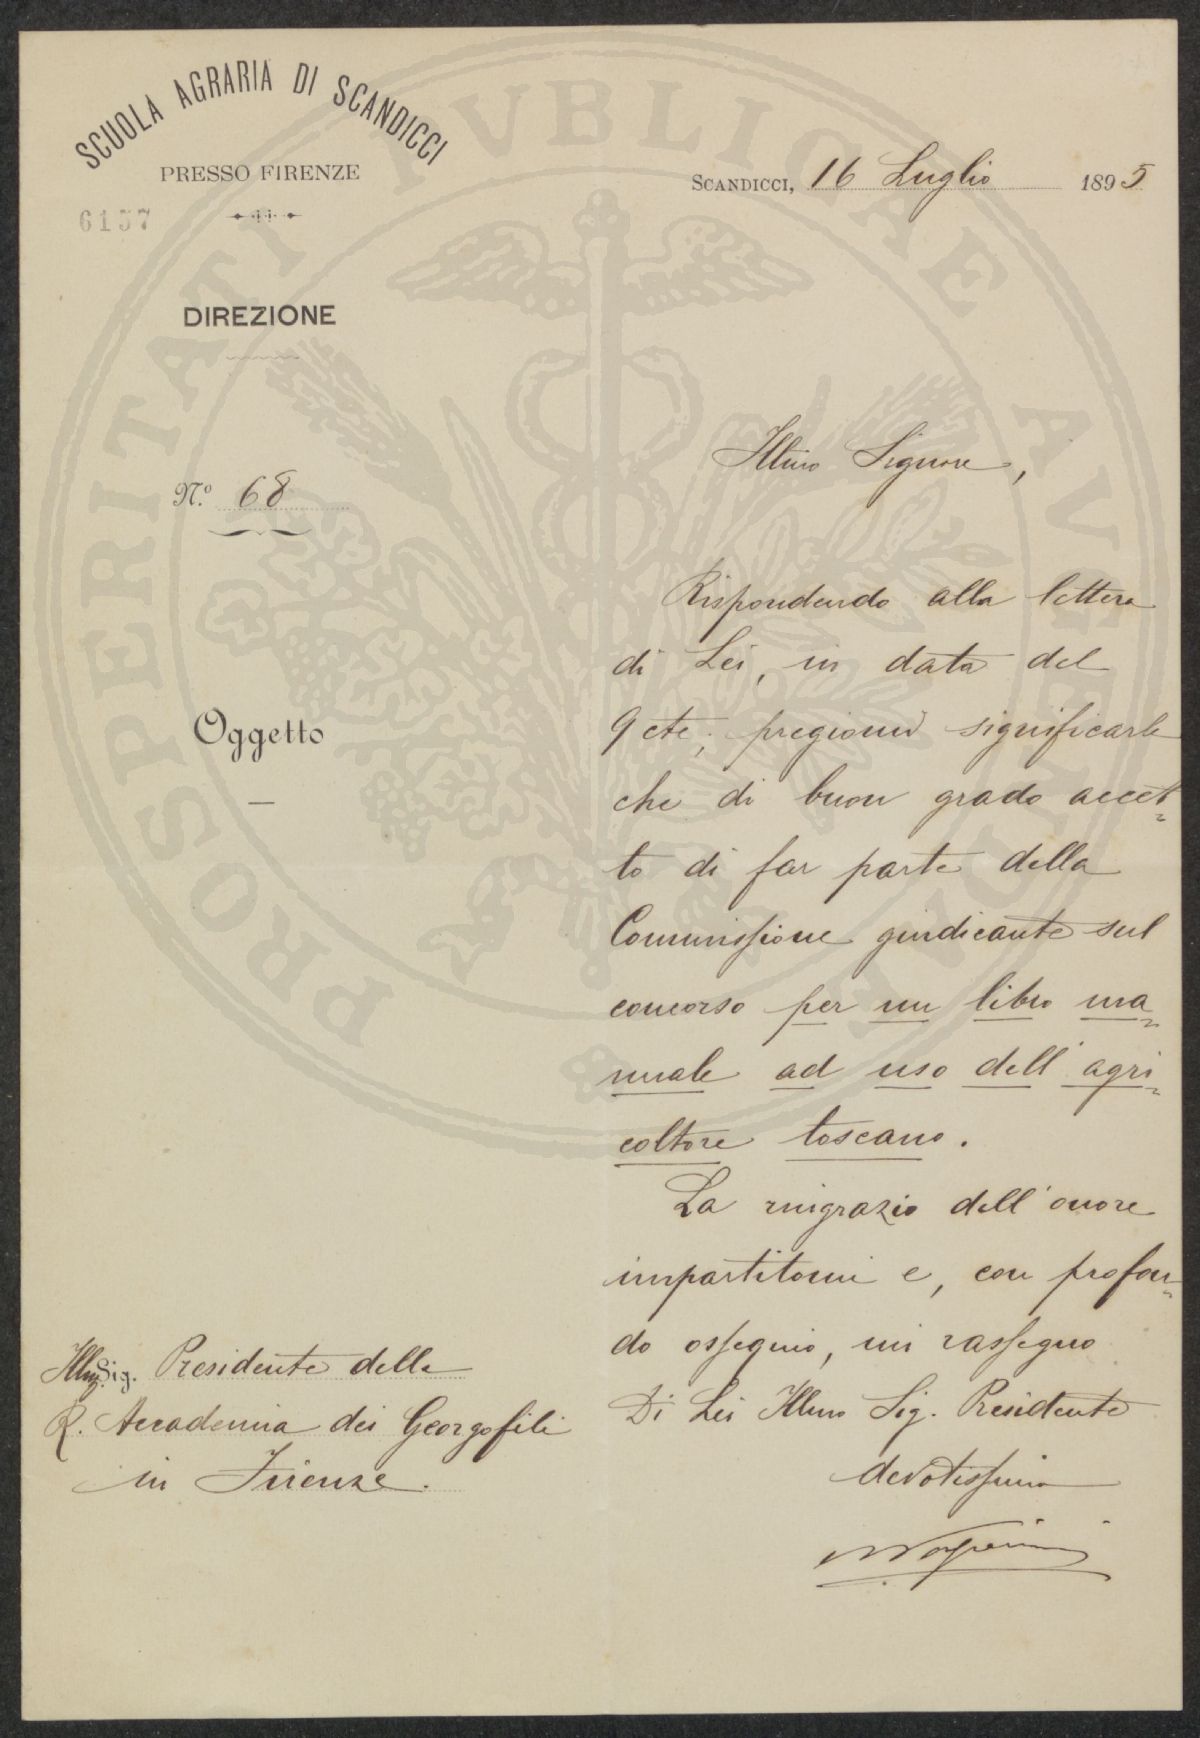 SCUOLA AGRARIA DI SCANDICCI
PRESSO FIRENZE
6137
Scandicci, 16 Luglio 1895
DIREZIONE
N.° 68
Oggetto
Illmo Signore,
Rispondendo alla lettera
di Lei, in data del
9 cte; pregiomi significarle
che di buon grado accet-
to di far parte della
Commissione giudicante sul
concorso per un libro ma-
nuale ad uso dell'agri-
coltore toscano.
La ringrazio dell'onore
impartitomi e, con profon-
do ossequio, mi rassegno
Di Lei Illmo Sig. Presidente
devotissimo
Illmo Sig. Presidente della
R. Accademia dei Georgofili
in Firenze.
PROSPERITATI PVBLICAE AVGENDAE